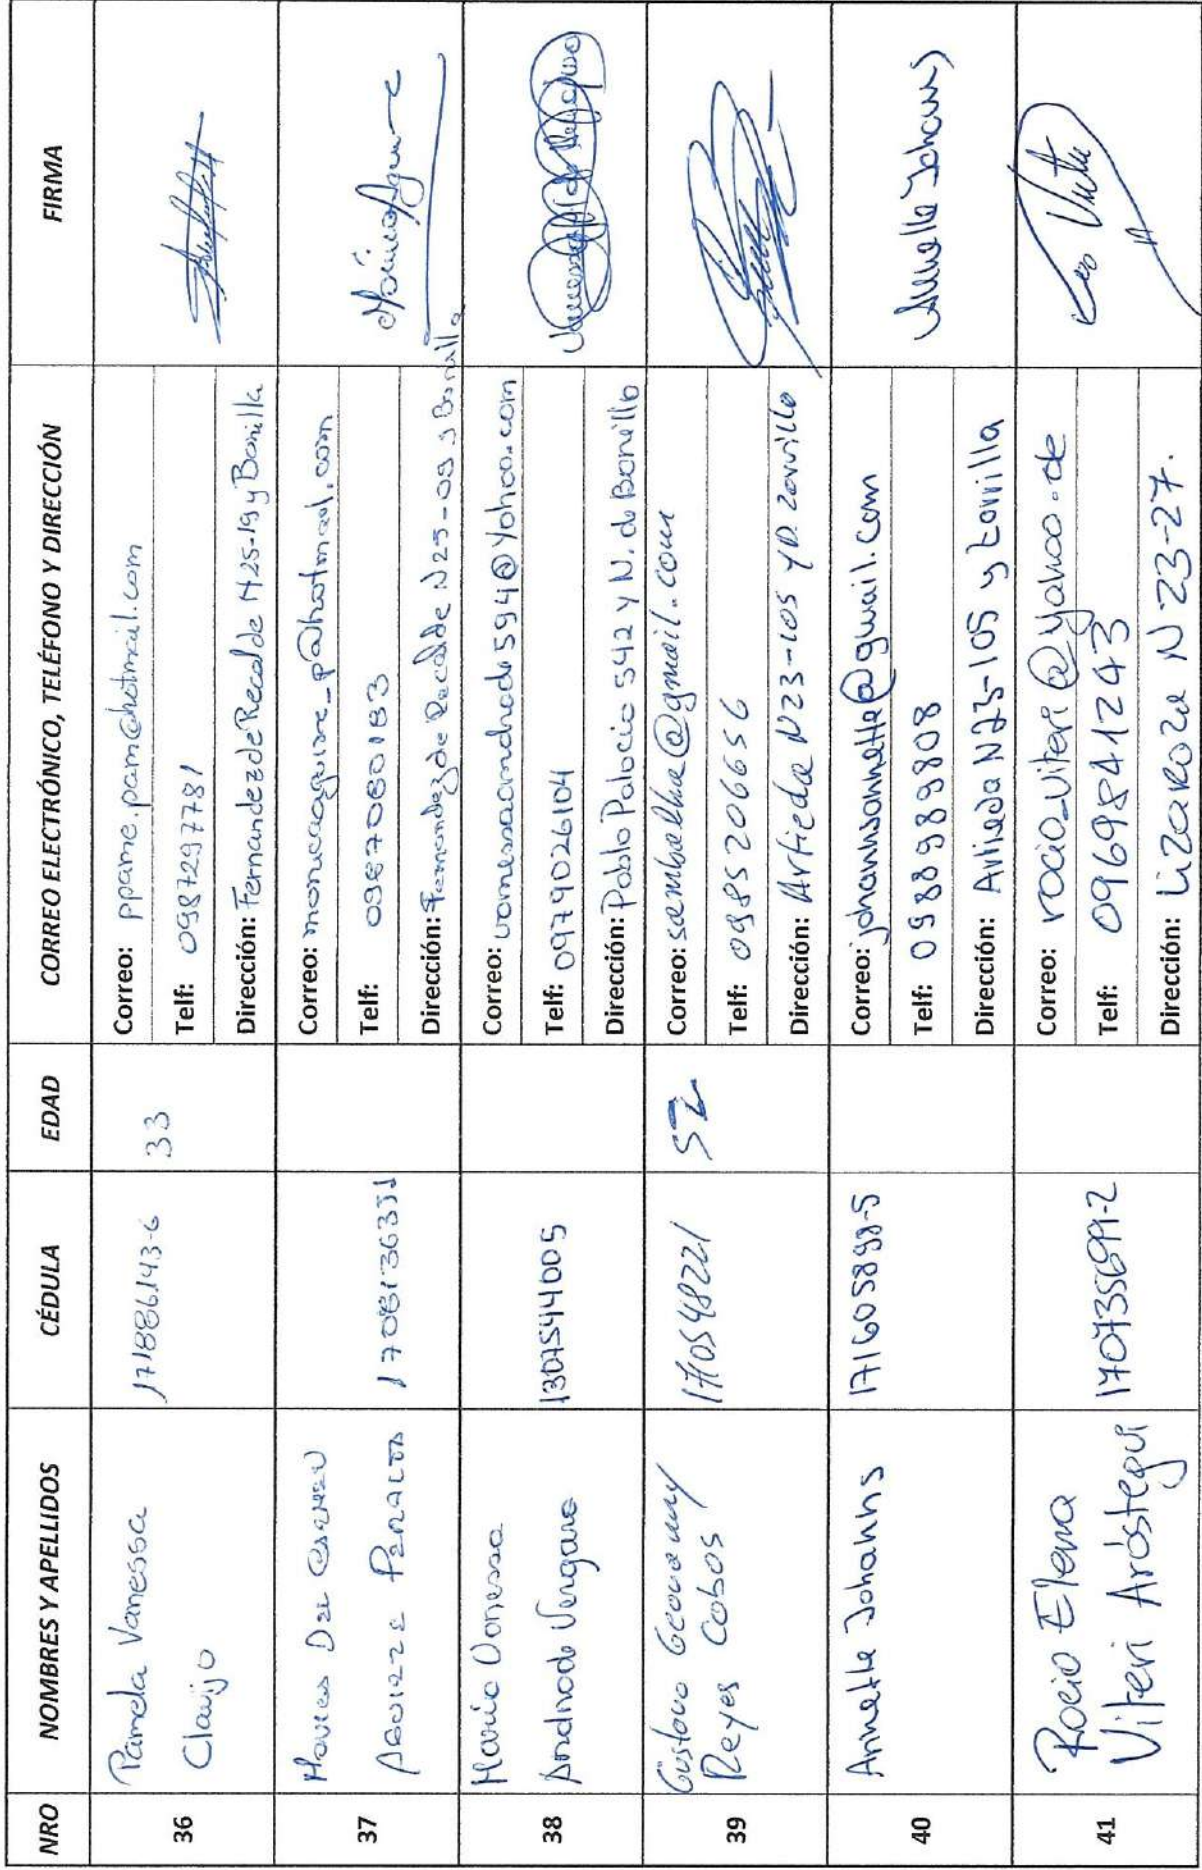 NRO NOMBRES Y APELLIDOS CÉDULA EDAD CORREO ELECTRÓNICO, TELÉFONO Y DIRECCIÓN FIRMA
36
Pamela Vanessa
Clavijo
171886143-6
33
Correo: ppame.pam@hotmail.com
Telf: 0987297781
Dirección: Fernandez de Recalde N25-19 y Bonilla
37
Monica Del Carmen
Aguirre Peralta
Correo: monicaaguirre_p@hotmail.com
Telf: 0987080183
Dirección: Fernandez de Recalde N25-09 y Bonilla
Monica Aguirre
38
Maria Vanessa
Andrade Vergara
1307544005
Correo: vanessaandrade594@yahoo.com
Telf: 0979026104
Dirección: Pablo Palacio 542 y N. de Bonilla
39
Gustavo Geovanny
Reyes Cobos
1710548221
52
Correo: sambalhue@gmail.com
Telf: 0985206656
Dirección: Artieda N23-105 y D. Zorrilla
40
Annette Johanns
171605898-5
Correo: johannsannette@gmail.com
Telf: 0988989808
Dirección: Artieda N23-105 y Zorrilla
Annette Johanns
41
Rocio Elena
Viteri Aróstegui
170735699-2
Correo: rocio_viteri@yahoo.de
Telf: 0969841243
Dirección: Lizarazu N23-27.